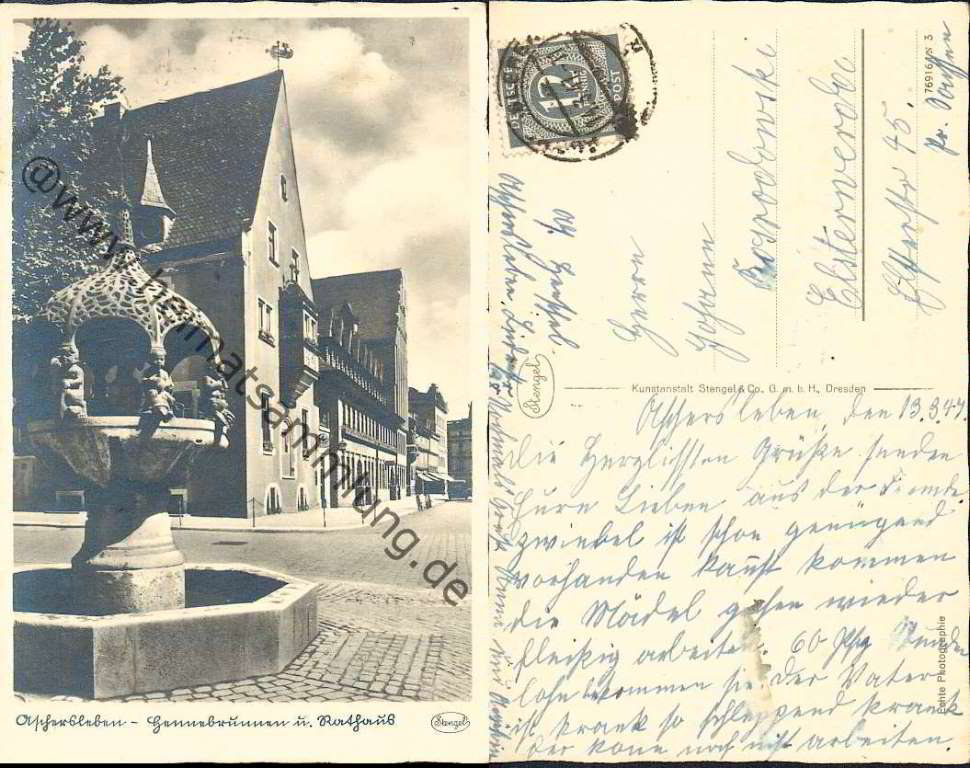 @www.heimatsammlung.de
Aschersleben - Hennebrunnen u. Rathaus
Stengel
DEUTSCHE POST
12
PFENNIG
Herrn
Johann
Elsterwerda
Elsterstr 45.
Pr. Sachsen
76916
3
Stengel
Kunstanstalt Stengel & Co., G. m. b. H., Dresden
Echte Photographie
Aschersleben, den 13.3.47.
die Herzlichsten Grüße senden
Eure Lieben aus der Fremde
zwiebel ist schon genügend
vorhanden kauft kommen
die Mädel gehen wieder
fleißig arbeiten. 60 Pfg Stunden
lohn bekommen sie. der Vater
ist krank so schleppend krank
der kone noch nicht arbeiten.